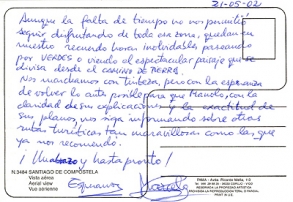 21-05-02
Aunque la falta de tiempo no nos permitió
seguir disfrutando de toda esa zona, quedan en
nuestro recuerdo horas inolvidables paseando
por VERDES o viendo el espectacular paisaje que se
divisa desde el CAMINO DE
Nos marchamos con tristeza, pero con la esperanza
de volver lo antes posible para que Manolo, con la
claridad de sus explicaciones y la exactitud de
sus planos, nos siga informando sobre otras
rutas turísticas tan maravillosas como las que
ya nos recomendó.
¡Un abrazo y hasta pronto!
Esperanza
N.3484 SANTIAGO DE COMPOSTELA
Vista aérea
Aerial view
Vue aérienne